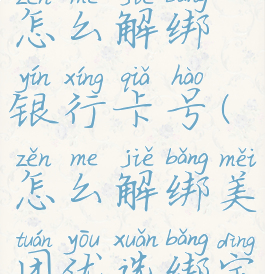 zěn me jiě bǎng
怎么解绑
yín xíng qiǎ hào
银行卡号(
zěn me jiě bǎng měi
怎么解绑美
tuán yōu xuǎn bǎng dìng
团优选绑定